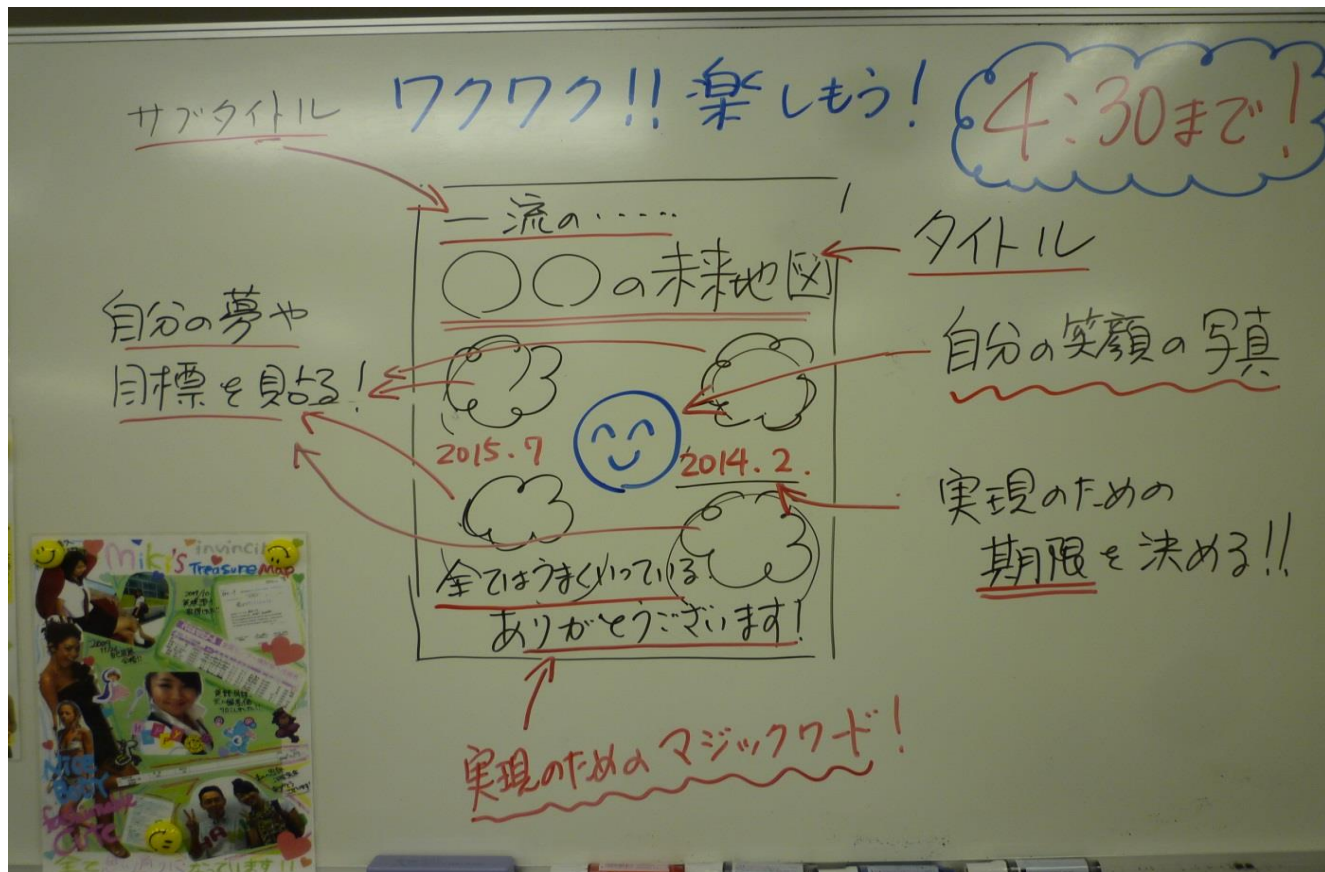 ワクワク!!楽しもう!
4:30まで!
サブタイトル
一流の・・・・・
タイトル
〇〇の未来地図
自分の夢や
目標を貼る!
自分の笑顔の写真
2015.7
2014.2.
実現のための
期限を決める!!
全てはうまくいっている
ありがとうございます!
実現のためのマジックワード!
Miki's invincible
Treasure Map